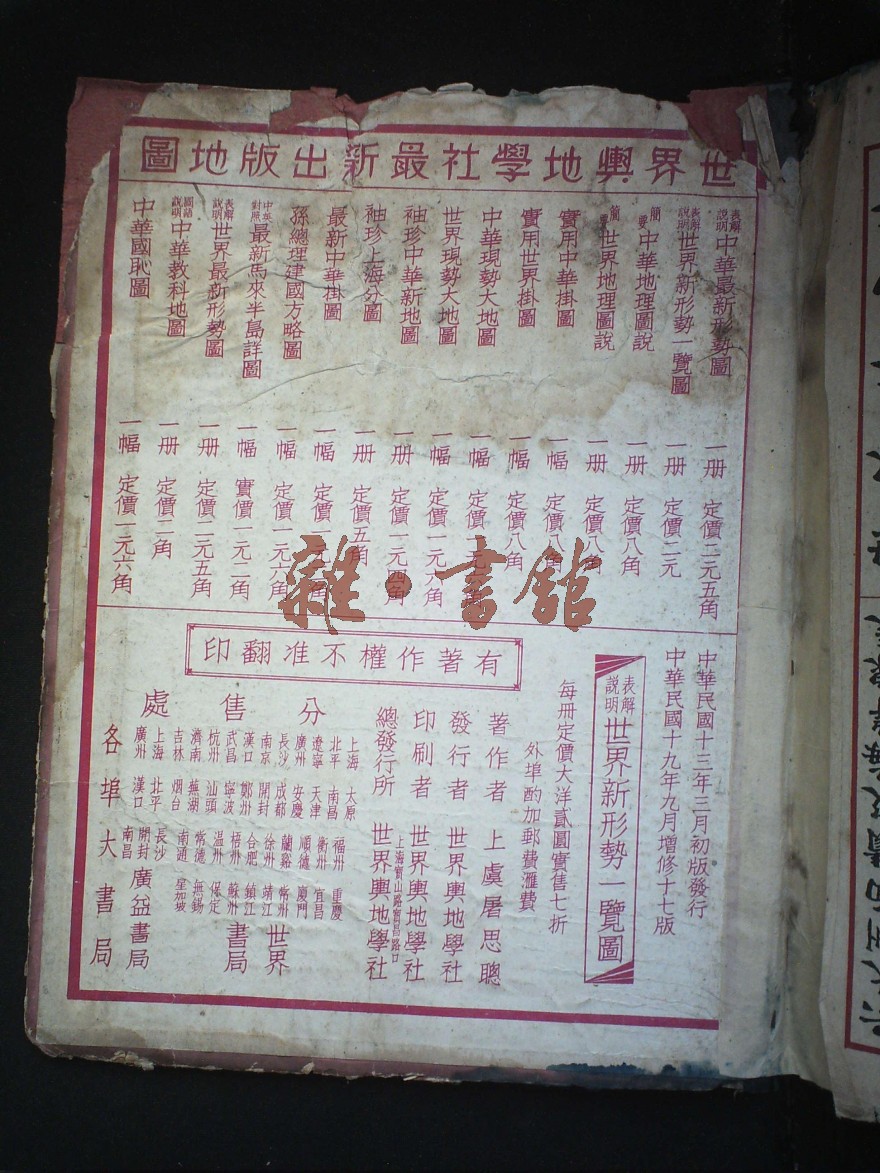 世界輿地學社最新出版地圖
表解說明中華最新形勢圖 一册 定價二元五角
表解說明世界新形勢一覽圖 一册 定價二元
簡要中華地理圖說 一册 定價八角
簡要世界地理圖說 一册 定價八角
實用中華掛圖 一幅 定價八角
實用世界掛圖 一幅 定價八角
中華現勢大地圖 一幅 定價
世界現勢大地圖 一幅 定價一元六角
袖珍中華新地圖 一册 定價一元四角
袖珍上海分圖 一册 定價五角
最新中華掛圖 一幅 定價一元 角
孫總理建國方略圖 一幅 定價一元六角
中英對照最新馬來半島詳圖 一幅 實價一元二角
表解說明世界最新形勢圖 一册 定價二元五角
國語說明中華教科地圖 一册 定價二角
中華國恥圖 一幅 定價一元六角
雜·書館
中華民國十三年三月初版發行
中華民國十九年九月增修十七版
表解說明世界新形勢一覽圖
每冊定價大洋貳圓實售七折
外埠酌加郵費滙費
有著作權不准翻印
著作者 上虞屠思聰
發行者 世界輿地學社
印刷者 世界輿地學社
上海寶山路寶昌路口
總發行所 世界輿地學社
分售處
上海 太原 福州 重慶
北平 南昌 衢州 宜昌
遼寧 天津 順德 廈門
廣州 安慶 蘭谿 常州
長沙 成都 徐州 靖江
南京 開封 合肥 鎮江
漢口 鄭州 梧州 蘇州
武昌 寧波 温州 保定
杭州 汕頭 常德 無錫
濟南 蕪湖 南通 星加坡
吉林 烟台
世界書局
上海 北平 長沙 開封
廣州 漢口 南昌
廣益書局
各埠大書局